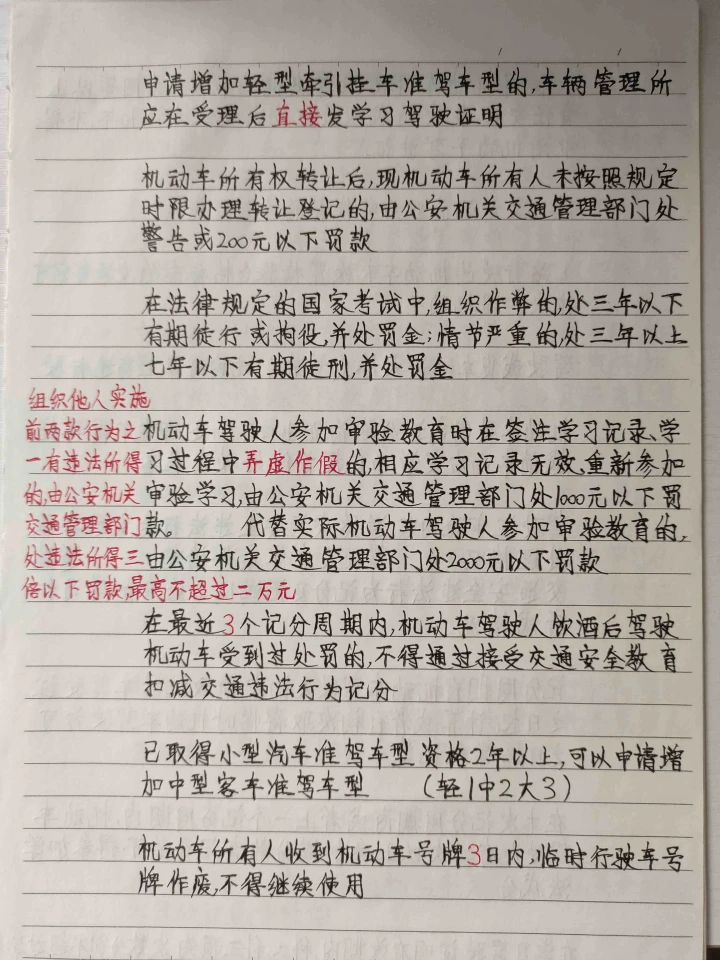 申请增加轻型牵引挂车准驾车型的,车辆管理所
应在受理后直接发学习驾驶证明
机动车所有权转让后,现机动车所有人未按照规定
时限办理转让登记的,由公安机关交通管理部门处
警告或200元以下罚款
在法律规定的国家考试中,组织作弊的,处三年以下
有期徒行或拘役,并处罚金;情节严重的,处三年以上
七年以下有期徒刑,并处罚金
组织他人实施
前两款行为之
一有违法所得
的,由公安机关
交通管理部门
处违法所得三
倍以下罚款,最高不超过二万元
机动车驾驶人参加审验教育时在签注学习记录、学
习过程中弄虚作假的,相应学习记录无效、重新参加
审验学习,由公安机关交通管理部门处1000元以下罚
款。 代替实际机动车驾驶人参加审验教育的,
由公安机关交通管理部门处2000元以下罚款
在最近3个记分周期内,机动车驾驶人饮酒后驾驶
机动车受到过处罚的,不得通过接受交通安全教育
扣减交通违法行为记分
已取得小型汽车准驾车型资格2年以上,可以申请增
加中型客车准驾车型 (轻1中2大3)
机动车所有人收到机动车号牌3日内,临时行驶车号
牌作废,不得继续使用